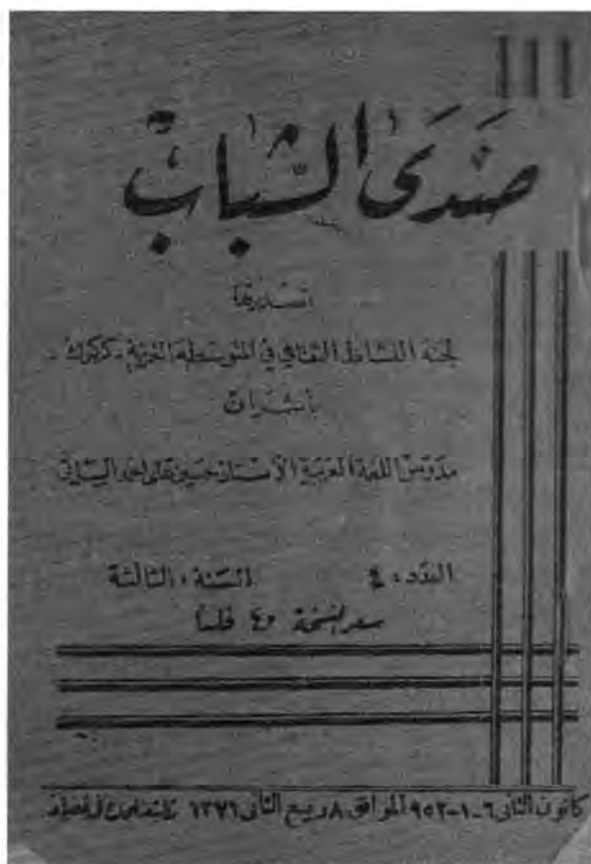 صَدَى الشَّبَابْ
تصدرها
لجنة النشاط الثقافي في المتوسطة الغربية - كركوك -
بأشراف
مدرس اللغة العربية الأستاذ حسين علي احمد
العدد : ٤ السنة : الثالثة
سعر النسخة ٤٠ فلساً
كانون الثاني ٦-١-٩٥٢ الموافق ٨ ربيع الثاني ١٣٧١